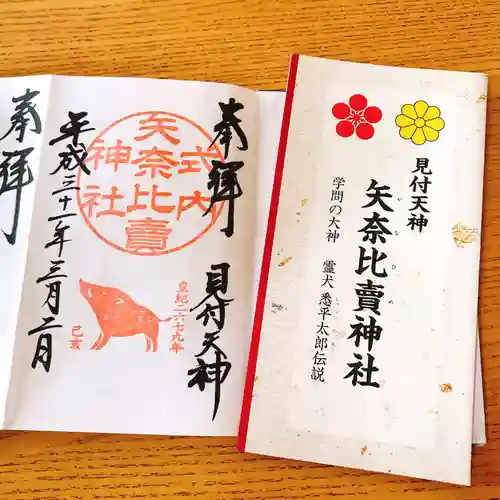 奉拝
見付天神
式内
矢奈比賣
神社
皇紀二六七九年
己亥
平成三十一年三月二日
奉拝
見付天神
矢奈比賣神社
やなひめ
学問の大神 霊犬 悉平太郎伝説